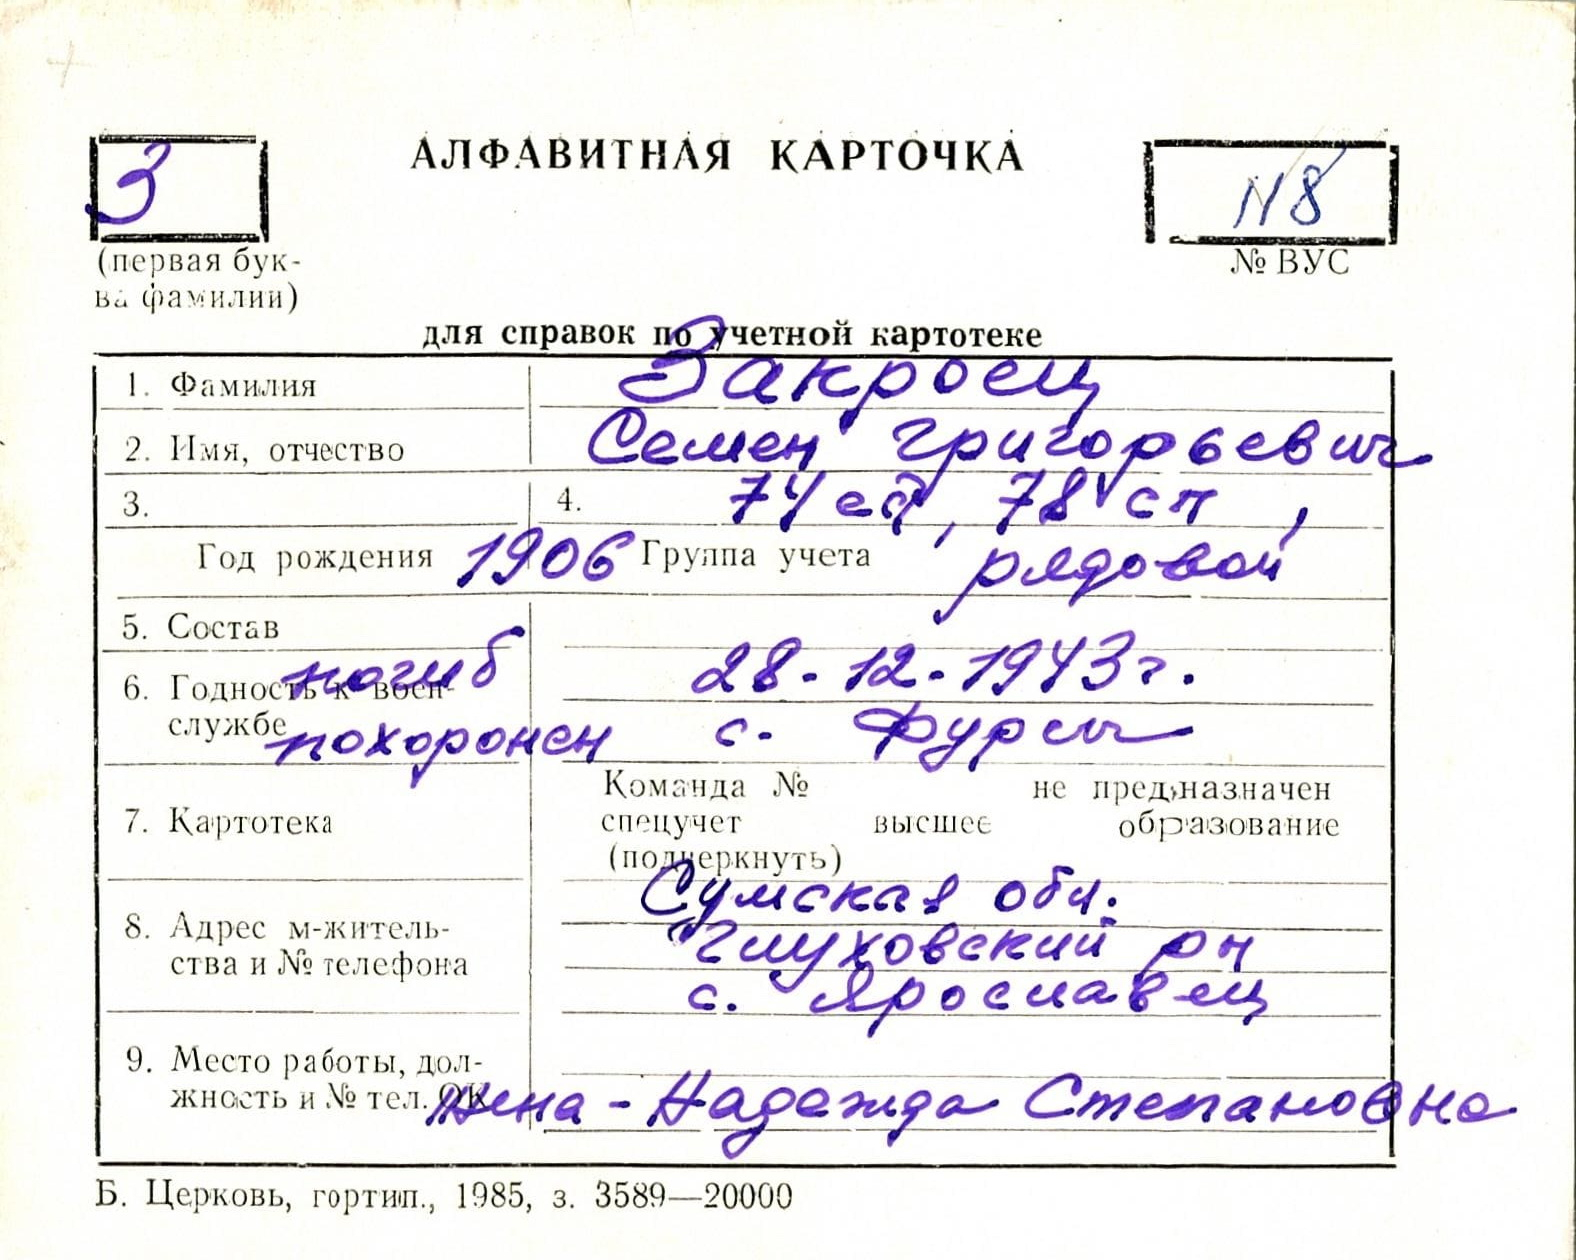 З
АЛФАВИТНАЯ КАРТОЧКА
№8
(первая бук-
ва фамилии)
№ ВУС
для справок по учетной картотеке
1. Фамилия Закроец
2. Имя, отчество Семен Григорьевич
3. 4. 74 сд, 78 сп,
Год рождения 1906 Группа учета рядовой
5. Состав
погиб 28-12-1943г.
6. Годность к воен-
службе
похоронен с. Фурсы
Команда № не предназначен
7. Картотека спецучет высшее образование
(подчеркнуть)
Сумская обл.
8. Адрес м-житель- Глуховский рн
ства и № телефона с. Ярославец
9. Место работы, дол-
жность и № тел. ОК
жена - Надежда Степановна
Б. Церковь, гортип., 1985, з. 3589—20000